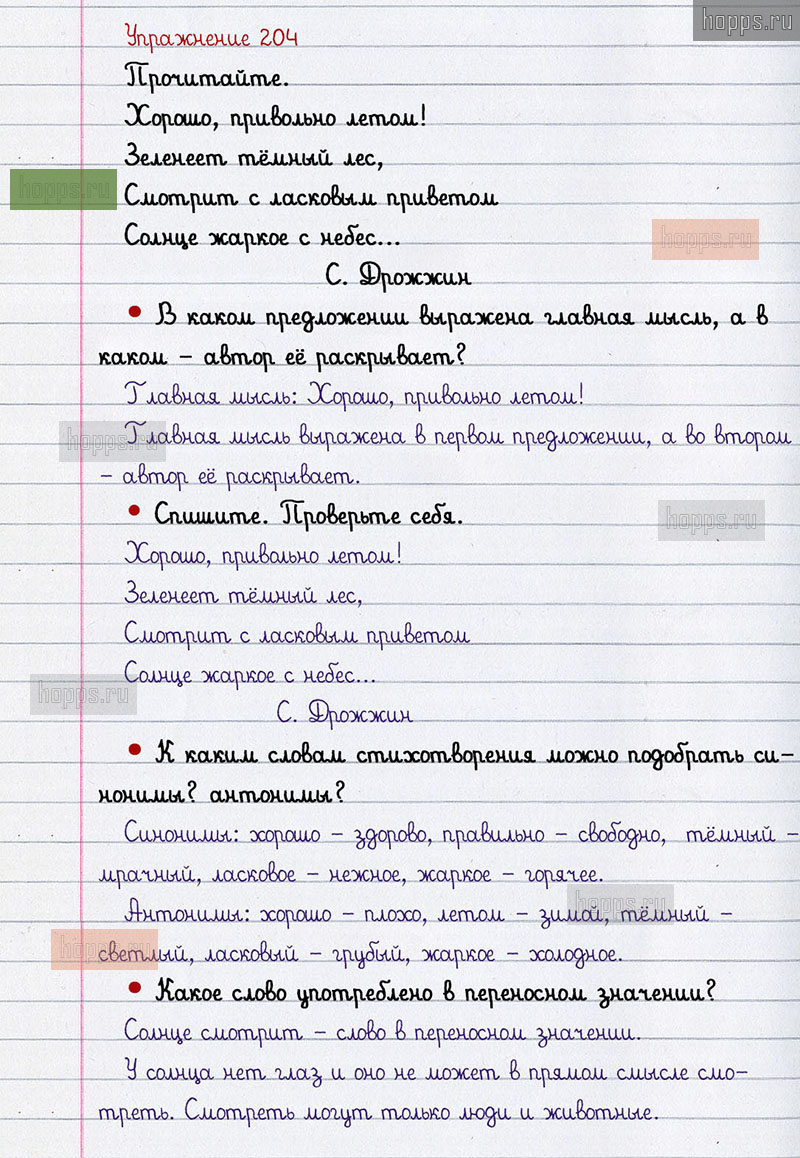 hopps.ru
Упражнение 204
Прочитайте.
Хорошо, привольно летом!
Зеленеет тёмный лес,
hopps.ru
Смотрит с ласковым приветом
Солнце жаркое с небес...
hopps.ru
С. Дрожжин
• В каком предложении выражена главная мысль, а в
каком – автор её раскрывает?
Главная мысль: Хорошо, привольно летом!
hopps.ru
Главная мысль выражена в первом предложении, а во втором
– автор её раскрывает.
• Спишите. Проверьте себя.
hopps.ru
Хорошо, привольно летом!
Зеленеет тёмный лес,
Смотрит с ласковым приветом
Солнце жаркое с небес...
hopps.ru
С. Дрожжин
• К каким словам стихотворения можно подобрать си-
нонимы? антонимы?
Синонимы: хорошо – здорово, правильно – свободно, тёмный –
мрачный, ласковое – нежное, жаркое – горячее.
hopps.ru
Антонимы: хорошо – плохо, летом – зимой, тёмный –
hopps.ru
светлый, ласковый – грубый, жаркое – холодное.
• Какое слово употреблено в переносном значении?
Солнце смотрит – слово в переносном значении.
У солнца нет глаз и оно не может в прямом смысле смо-
треть. Смотреть могут только люди и животные.